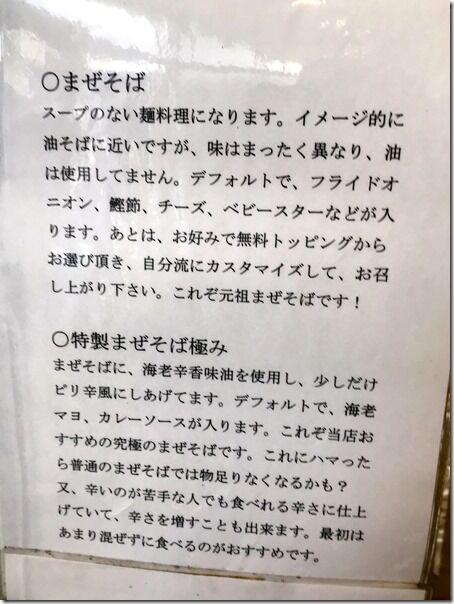 ○まぜそば
スープのない麺料理になります。イメージ的に
油そばに近いですが、味はまったく異なり、油
は使用してません。デフォルトで、フライドオ
ニオン、鰹節、チーズ、ベビースターなどが入
ります。あとは、お好みで無料トッピングから
お選び頂き、自分流にカスタマイズして、お召
し上がり下さい。これぞ元祖まぜそばです！
○特製まぜそば極み
まぜそばに、海老辛香味油を使用し、少しだけ
ピリ辛風にしあげてます。デフォルトで、海老
マヨ、カレーソースが入ります。これぞ当店お
すすめの究極のまぜそばです。これにハマった
ら普通のまぜそばでは物足りなくなるかも？
又、辛いのが苦手な人でも食べれる辛さに仕上
げていて、辛さを増すことも出来ます。最初は
あまり混ぜずに食べるのがおすすめです。